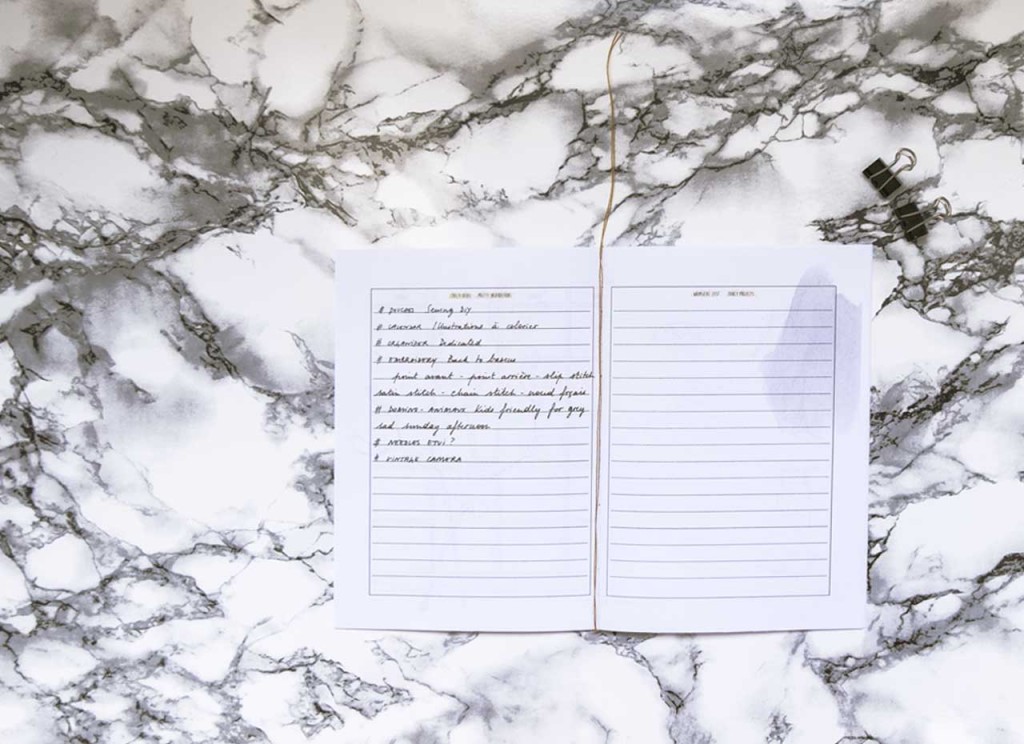 # Sewing DIY
# CALENDAR Illustrations à colorier
# ORGANIZER Dedicated
# EMBROIDERY Back to basics
point avant - point arrière - slip stitch
satin stitch - chain stitch - noeud
# kids friendly for grey
sad sunday afternoon
# NEEDLES ETUI ?
# VINTAGE CAMERA